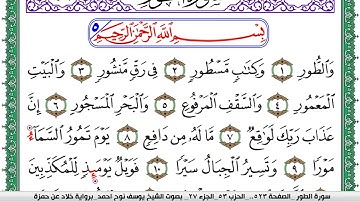 بِسْمِ اللَّهِ الرَّحْمَٰنِ الرَّحِيمِ
وَالطُّورِ ١ وَكِتَابٍ مَّسْطُورٍ ٢ فِي رَقٍّ مَّنشُورٍ ٣ وَالْبَيْتِ
الْمَعْمُورِ ٤ وَالسَّقْفِ الْمَرْفُوعِ ٥ وَالْبَحْرِ الْمَسْجُورِ ٦ إِنَّ
عَذَابَ رَبِّكَ لَوَاقِعٌ ٧ مَّا لَهُ مِن دَافِعٍ ٨ يَوْمَ تَمُورُ السَّمَاءُ
مَوْرًا ٩ وَتَسِيرُ الْجِبَالُ سَيْرًا ١٠ فَوَيْلٌ يَوْمَئِذٍ لِّلْمُكَذِّبِينَ
سورة الطور _الصفحة ٥٢٣_ الحزب ٥٣_الجزء ٢٧_ بصوت الشيخ يوسف نوح أحمد_برواية خلاد عن حمزة